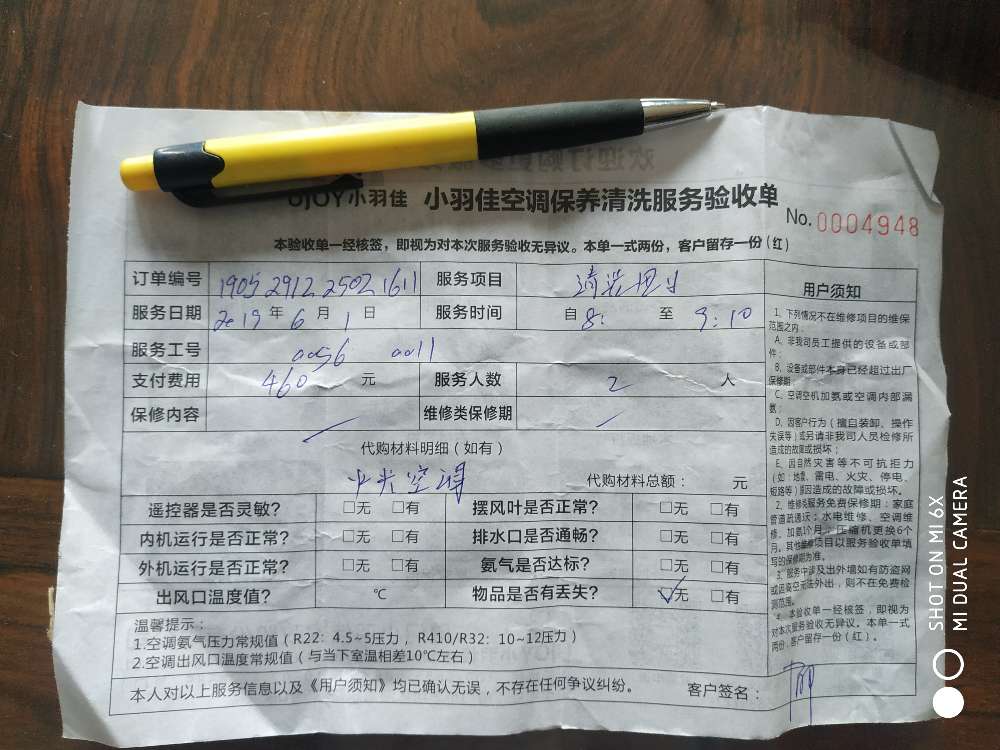 OJOY小羽佳 小羽佳空调保养清洗服务验收单
No. 0004948
本验收单一经核签，即视为对本次服务验收无异议。本单一式两份，客户留存一份（红）
订单编号 1905 2912 2502 1611 服务项目
服务日期 2019 年 6 月 1 日 服务时间 自 8: 至 9:10
服务工号 0056 0011
支付费用 460 元 服务人数 2 人
保修内容 维修类保修期
代购材料明细（如有）
中央空调 代购材料总额： 元
遥控器是否灵敏? □无 □有 摆风叶是否正常? □无 □有
内机运行是否正常? □无 □有 排水口是否通畅? □无 □有
外机运行是否正常? □无 □有 氨气是否达标? □无 □有
出风口温度值? ℃ 物品是否有丢失? ☑无 □有
温馨提示：
1.空调氨气压力常规值（R22: 4.5~5压力，R410/R32: 10~12压力）
2.空调出风口温度常规值（与当下室温相差10℃左右）
本人对以上服务信息以及《用户须知》均已确认无误，不存在任何争议纠纷。 客户签名：
用户须知
1、下列情况不在维修项目的维保
范围之内：
A、非我司员工提供的设备或部
件；
B、设备或部件本身已经超过出厂
保修期
C、空调空机加氨或空调内部漏
氨；
D、因客户行为（擅自装卸、操作
失误等）或另请非我司人员检修所
造成的故障或损坏；
E、因自然灾害等不可抗拒力
（如：地震、雷电、火灾、停电、
短路等）原因造成的故障或损坏。
2、维修类服务免费保修期：家庭
管道疏通沃；水电维修、空调维
修、加氨1个月；压缩机更换6个
月。其他维修项目以服务验收单填
写的保修期为准。
3、服务中涉及出外墙如有防盗网
或固定空无法外出，则不在免费检
测范围。
4、本验收单一经核签，即视为
对本次服务验收无异议。本单一式
两份，客户留存一份（红）。
SHOT ON MI 6X
MI DUAL CAMERA